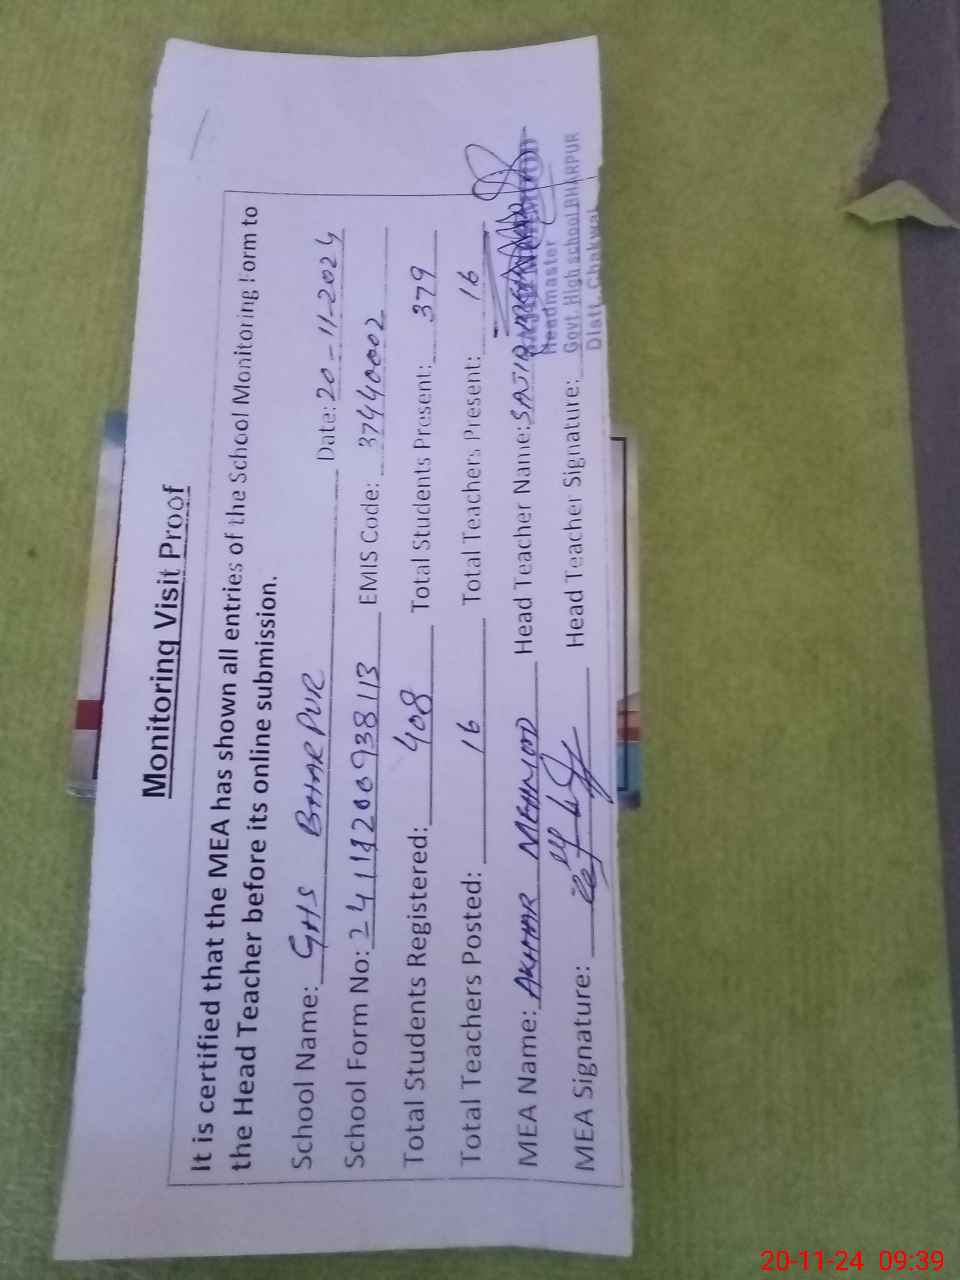 Monitoring Visit Proof
It is certified that the MEA has shown all entries of the School Monitoring Form to
the Head Teacher before its online submission.
School Name: GHS BHARPUR Date: 20-11-2024
School Form No: EMIS Code: 37440002
Total Students Registered: 408 Total Students Present: 379
Total Teachers Posted: 16 Total Teachers Present: 16
MEA Name: AKHTAR MEHMOOD Head Teacher Name: SAJID
MEA Signature: Head Teacher Signature:
Headmaster
Govt. High school BHARPUR
Distt. Chakwal
20-11-24 09:39